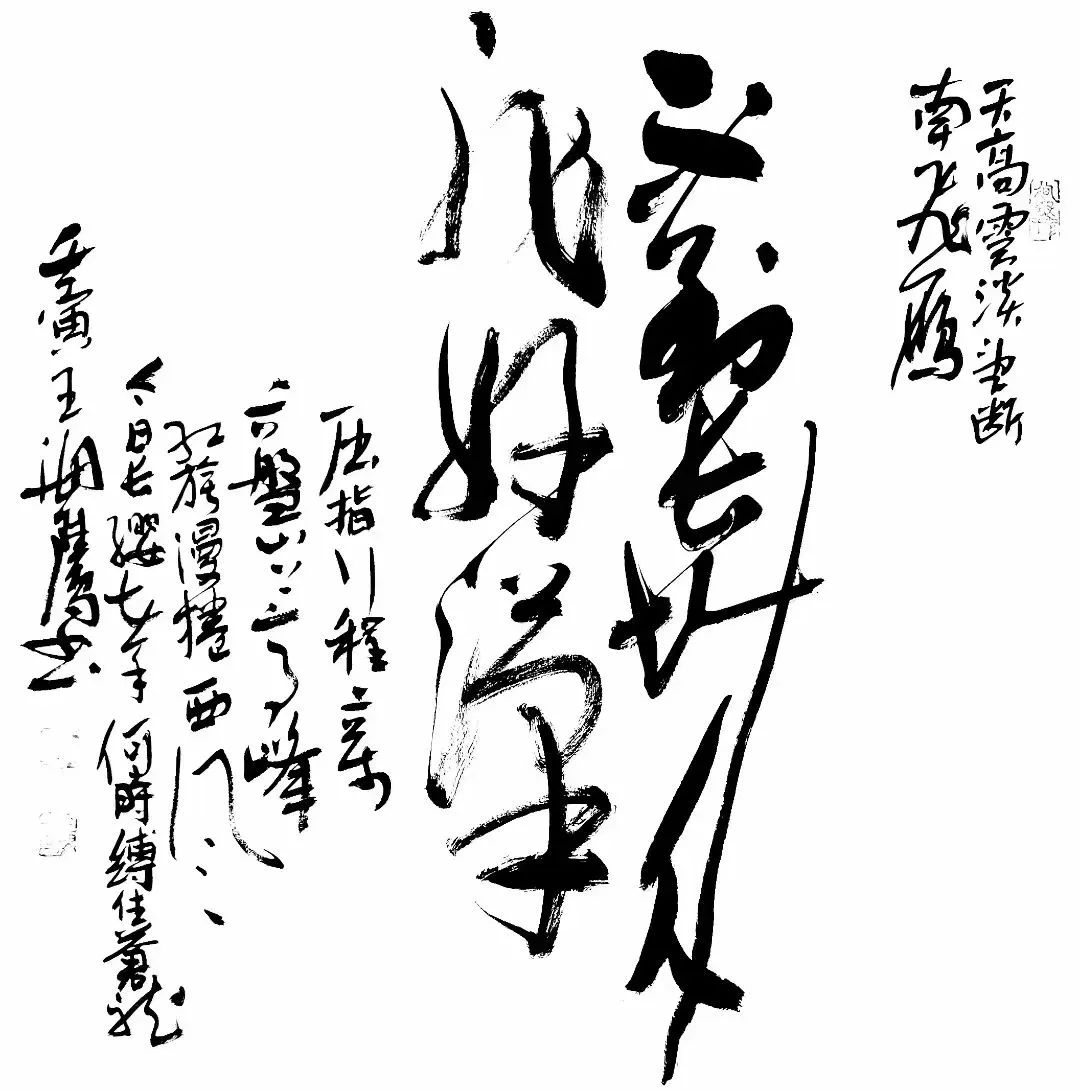 天高雲淡望断
南飛鴈
不到长城
非好漢
屈指行程二萬
六盤山上高峰
红旗漫捲西风
今日长纓在手何時縛住蒼龍
壬寅王鷹书